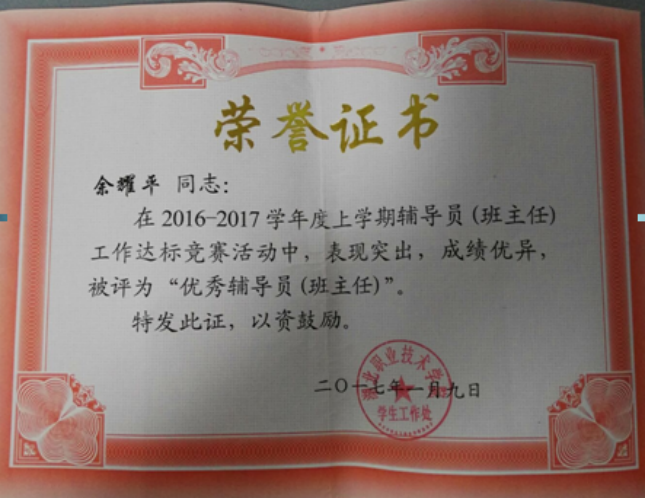 荣誉证书
余耀平 同志：
在2016-2017学年度上学期辅导员(班主任)
工作达标竞赛活动中，表现突出，成绩优异，
被评为“优秀辅导员(班主任)”。
特发此证，以资鼓励。
湖北职业技术学院
二〇一七年一月九日
学生工作处